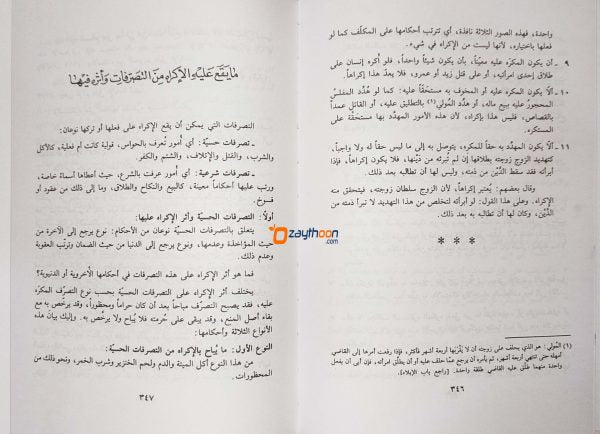 واحدة، فهذه الصور الثلاثة نافذة، أي تترتب أحكامها على المكلَّف كما لو
فعلها باختياره، لأنها ليست من الإكراه في شيء.
٩ ـ أن يكون المكره عليه معيَّناً، بأن يكون شيئاً واحداً، فلو أكره إنسان على
طلاق إحدى امرأتيه، أو على قتل زيد أو عمرو، فلا يعدّ هذا إكراهاً.
١٠ ـ ألّا يكون المكره عليه أو المخوف به مستحَقّاً عليه: كما لو هُدّد المفلسُ
المحجورُ عليه ببيع ماله، أو هدّد المُولي(١) بالتطليق عليه، أو القاتل عمداً
بالقصاص، فليس هذا بإكراه، لأن هذه الأمور المهدَّد بها مستحقّة على
المستكره.
١١ ـ ألّا يكون المهدّد به حقاً للمكره، يتوصل به إلى ما ليس حقاً له ولا واجباً،
كتهديد الزوج زوجته بطلاقها إن لم تبرئه من دَيْنها، فلا يكون إكراهاً، فإذا
أبرأته فقد سقط الدَّيْن من ذمته، وليس لها أن تطالبه به بعد ذلك.
وقال بعضهم: يُعتبر إكراهاً، لأن الزوج سلطان زوجته، فيتحقق منه
الإكراه. وعلى هذا القول: لو أبرأته لتخلص من هذا التهديد لا تبرأ ذمته من
الدَّيْن، وكان لها أن تطالبه به بعد ذلك.
* * *
(١) المُولي: هو الذي يحلف على زوجته أن لا يَقْربها أربعة أشهر فأكثر، فإذا رفعت أمرها إلى القاضي
أمهله حتى تنتهي أربعة أشهر، ثم يأمره أن يرجع عمّا حلف عليه أو أن يطلق امرأته، فإن أبى أن يفعل
واحدة منهما طلّق عليه القاضي طلقة واحدة. [راجع باب الإيلاء].
٣٤٦
ما يقع عليه الإكراه من التصرفات وأثره فيها
التصرفات التي يمكن أن يقع الإكراه على فعلها أو تركها نوعان:
ـ تصرفات حسيّة: أي أمور تُعرف بالحواس، قولية كانت أم فعلية، كالأكل
والشرب، والقتل والإتلاف، والشتم والكفر.
ـ تصرفات شرعية: أي أمور عرفت بالشرع، حيث أعطاها أسماءً خاصة،
ورتب عليها أحكاماً معينة، كالبيع والنكاح والطلاق، وما إلى ذلك من عقود أو
فسوخ.
أولاً: التصرفات الحسيّة وأثر الإكراه عليها:
يتعلق بالتصرفات الحسيّة نوعان من الأحكام: نوع يرجع إلى الآخرة من
حيث المؤاخذة وعدمها، ونوع يرجع إلى الدنيا من حيث الضمان وترتّب العقوبة
وعدم ذلك.
فما هو أثر الإكراه على هذه التصرفات في أحكامها الأُخروية أو الدنيوية؟
يختلف أثر الإكراه على التصرفات الحسيّة بحسب نوع التصرّف المكرَه
عليه، فقد يصبح التصرّف مباحاً بعد أن كان حراماً ومحظوراً، وقد يرخّص به مع
بقاء أصل المنع، وقد يبقى على حُرمته فلا يُباح ولا يرخّص به. وإليك بيان هذه
الأنواع الثلاثة وأحكامها:
النوع الأول: ما يُباح بالإكراه من التصرفات الحسيّة:
من هذا النوع أكل الميتة والدم ولحم الخنزير وشرب الخمر، ونحو ذلك من
المحظورات.
٣٤٧
zaythoon
.com